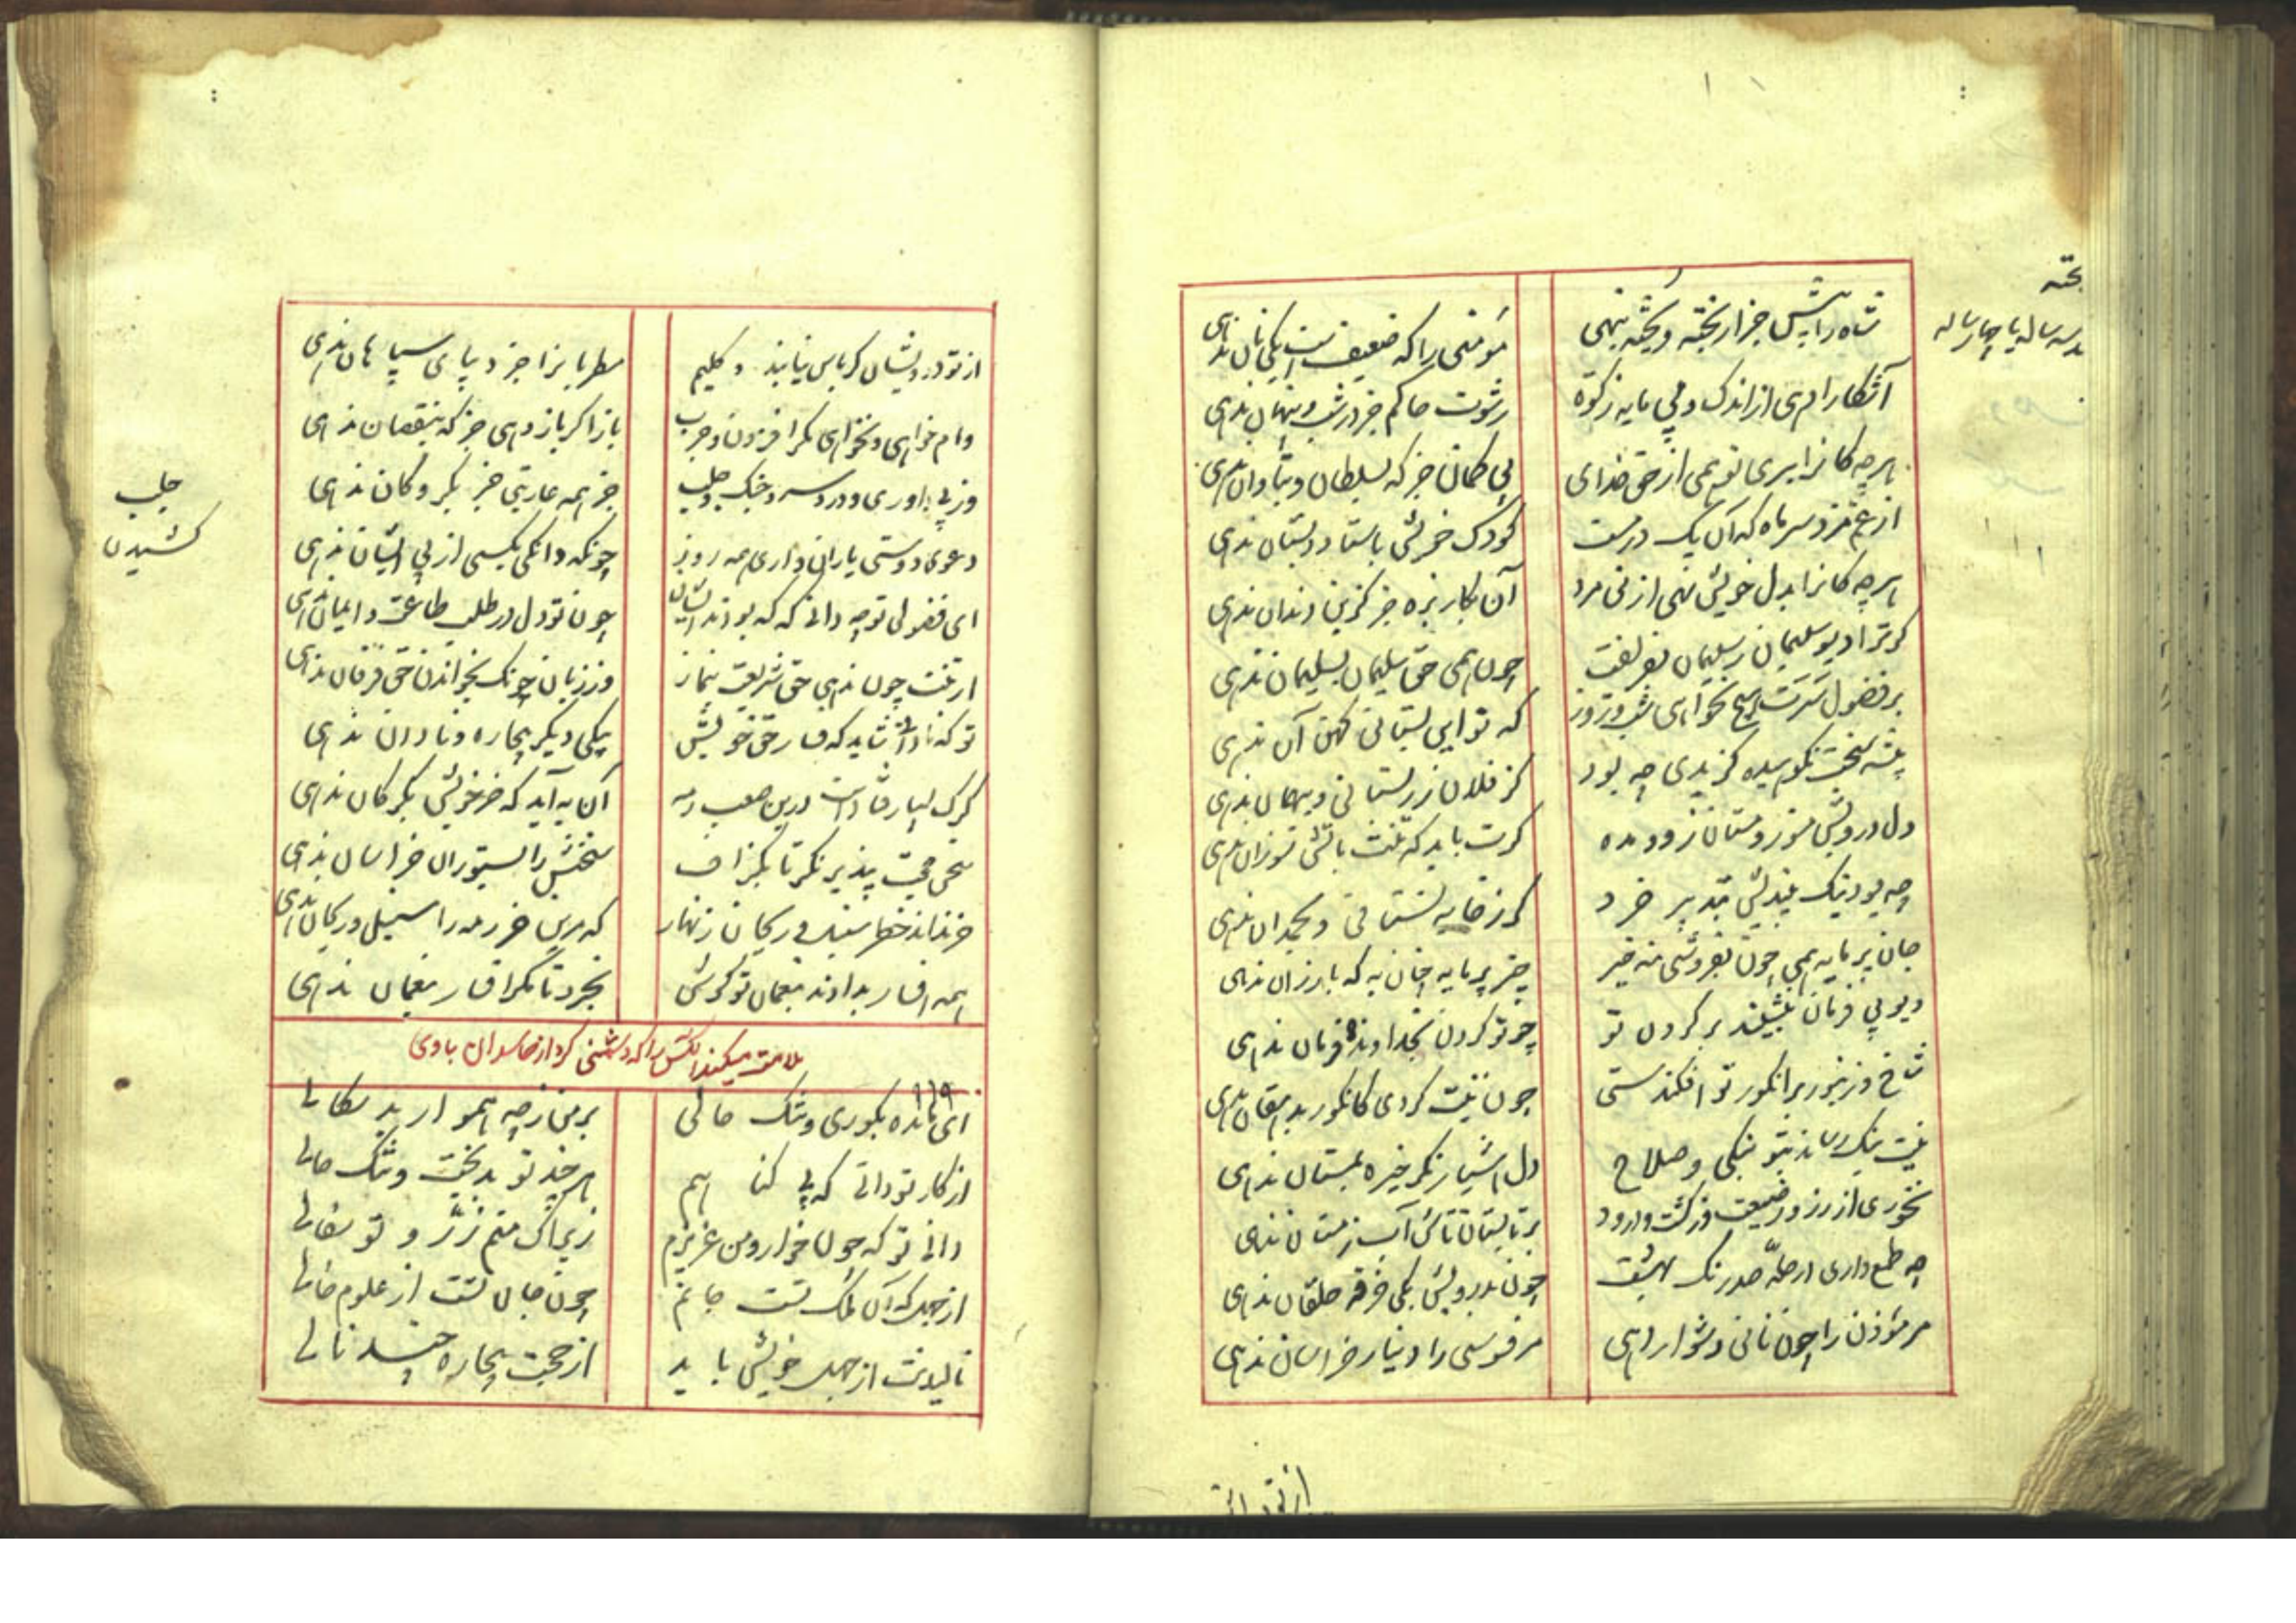 بخته
بره سه ساله یا چارساله
شاه را پیش جز از بخته و پخته ننهی
مؤمنی را که ضعیفست یکی نان ندهی
آشکارا دهی از اندک و بی مایه زکوة
رشوت حاکم جز در شب و پنهان ندهی
هر چه کانرا ببری تو همی از حق خدای
بی گمان جز که بسلطان و بتاوان ندهی
از غم مزد سر ماه که آن یک درمست
کودک خویش باستاد دبستان ندهی
هر چه کانرا بدل خویش نهی از فی مرد
آن بکار بزه جز کز بن دندان ندهی
گر ترا دیو سلیمان ز سلیمان نفریفت
چون همی حق سلیمان بسلیمان ندهی
بر فضول سرت هیچ نخواهی شب و روز
که تو این بستانی کهن آن ندهی
کز فلان زر بستانی و ببهمان ندهی
دل درویش مسوز و مستان زو و مده
گرت باید که تنت باتش سوزان ندهی
چه بود نیک بیندیش بتدبیر خرد
کز خانه بستانی و بحمدان ندهی
جان پر مایه همی چون بفروشی منه خیر
چیز پر مایه چنان به که بارزان ندهی
دیو بی فرمان بنشیند بر گردن تو
چو تو گردن بخداوند فرمان ندهی
شاخ و زنبور بر انگور تو افکندستی
چون نیت کردی کانگور بدهقان ندهی
نیت نیک رساند بتو نیکی و صلاح
دل هشیار نگر خیره بمستان ندهی
نخوری از رز و ز ضیعت وز کشت و درود
بر تابستان تاش آب زمستان ندهی
چه طمع داری از حله صد رنگ بهشت
چون بدرویش یکی خرقه خلقان ندهی
مر مؤذن را چون نانی دشوار دهی
مر فسوسی را دینار خراسان ندهی
از تو در
از تو درویشان کرباس نیابند و گلیم
مطربانرا جز دیبای سپاهان ندهی
وام خواهی و نخواهی مگر افزون و چرب
باز اگر باز دهی جز که بنقصان ندهی
وز پی داوری و درد سر و جنگ و جلب
جز همه عاریتی خر بکروکان ندهی
جلب
کشیدن
دعوی دوستی یاران داری همه روز
چونکه دانگی بکسی از پی ایشان ندهی
ای فضولی تو چه دانی که که بودند ایشان
چون تو دل در طلب طاعت و ایمان ندهی
از تنت چون ندهی حق شریعت بنماز
وز زبان چونک بخواندن حق فرقان ندهی
تو که نادانی شاید که فسار خر خویش
بیکی دیگر بیچاره و نادان ندهی
گرگ بسیار فتادست درین صعب رمه
آن به آید که خر خویش بگرگان ندهی
سخن حجت بپذیر نگر تا بگزاف
سخنش را بستوران خراسان ندهی
خر نداند خطر سنبل و ریحان زنهار
که مرین خر رمه را سنبل و ریحان ندهی
همه افسار بدادند بنعمان تو بکوش
بخرد تا مگر افسار بنعمان ندهی
ملامت میکند آنکس را که دشمنی کرد از حاسدان باوی
۱۱۹
ای مانده بکوری و تنگ حالی
بر من ز چه همواره بد سکالی
از کار تو دانی که بی گناهم
هر چند تو بدبخت و تنگ حالی
دانی تو که چون خوار و من عزیزم
زیراک منم زر و تو سفالی
از جهل که آن ملک تست جانم
چون جان تست از علوم خالی
نالیدنت از جهل خویش باید
از حجت بیچاره چند نالی